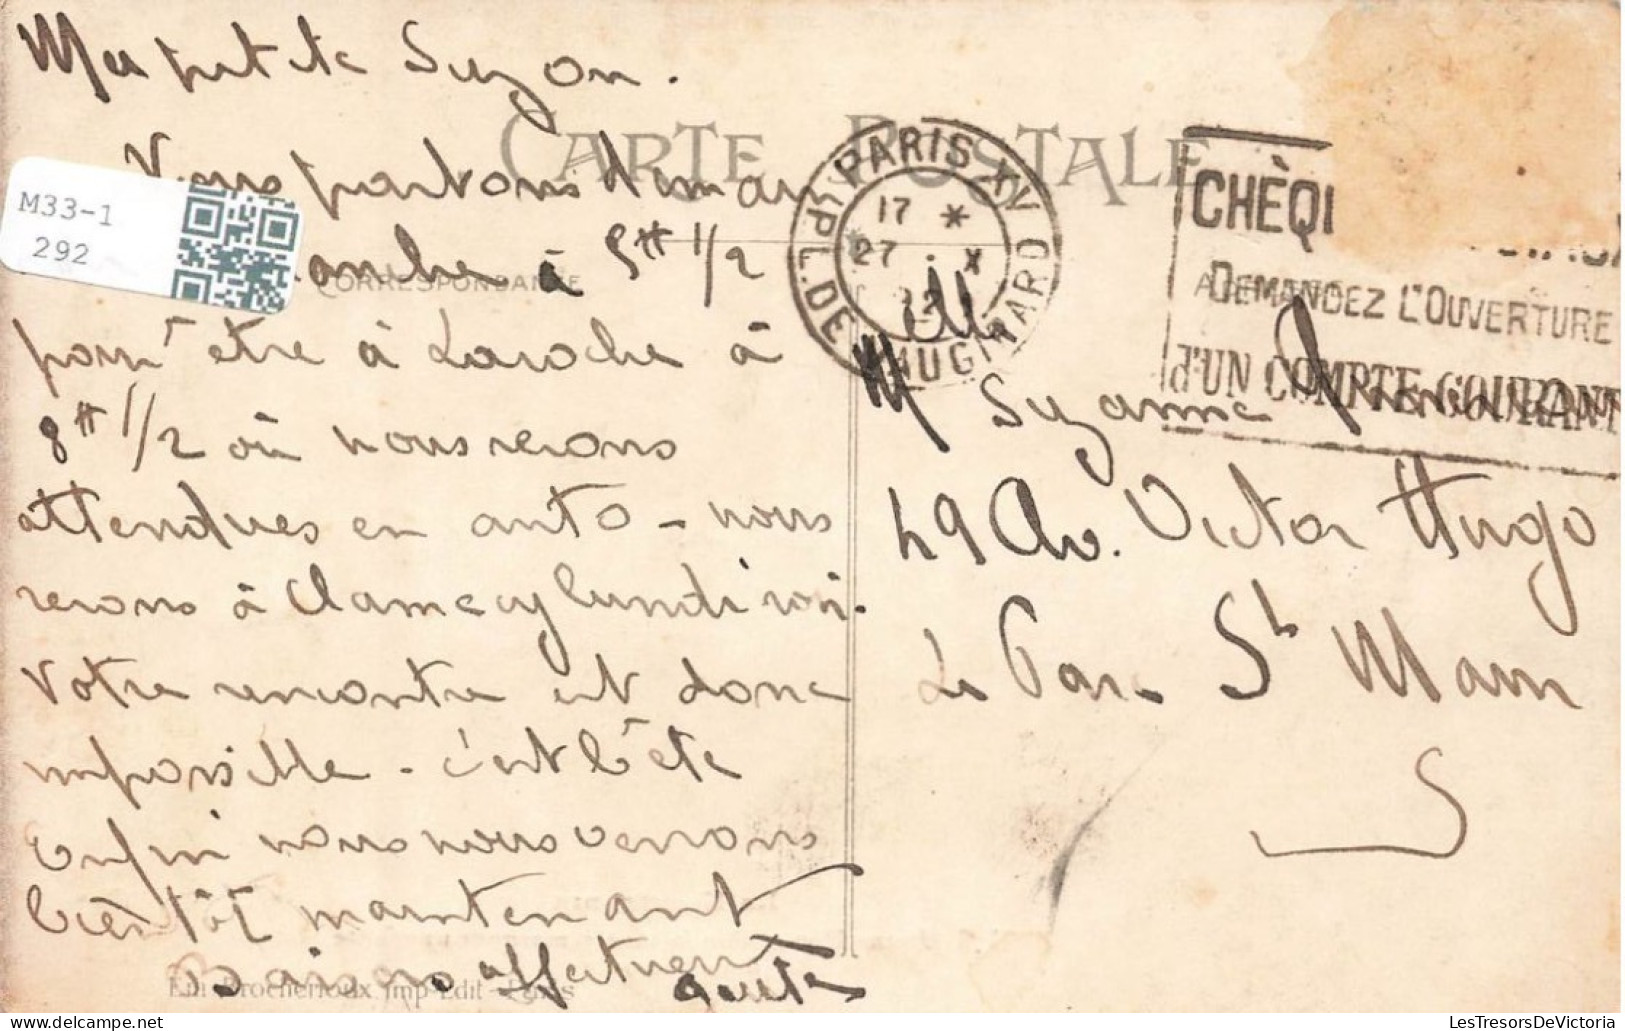 Ma petite Suzon.
CARTE POSTALE
Nous partons diman
M33-1
292
anche à 5H 1/2
CORRESPONDANCE
pour être à Laroche à
8H 1/2 où nous serons
attendues en auto - nous
serons à Clamecy lundi soir.
Votre rencontre est donc
impossible - c'est bête
Enfin nous nous verrons
bientôt maintenant
Baisers affectueux
PARIS XV
PL. DE VAUGIRARD
17 *
27 . X
22
CHÈQ
DEMANDEZ L'OUVERTURE
d'UN COMPTE COURANT
Mlle Suzanne
49 Av. Victor Hugo
Le Parc St Maur
S
Imp-Edit - Paris
LesTresorsDeVictoria